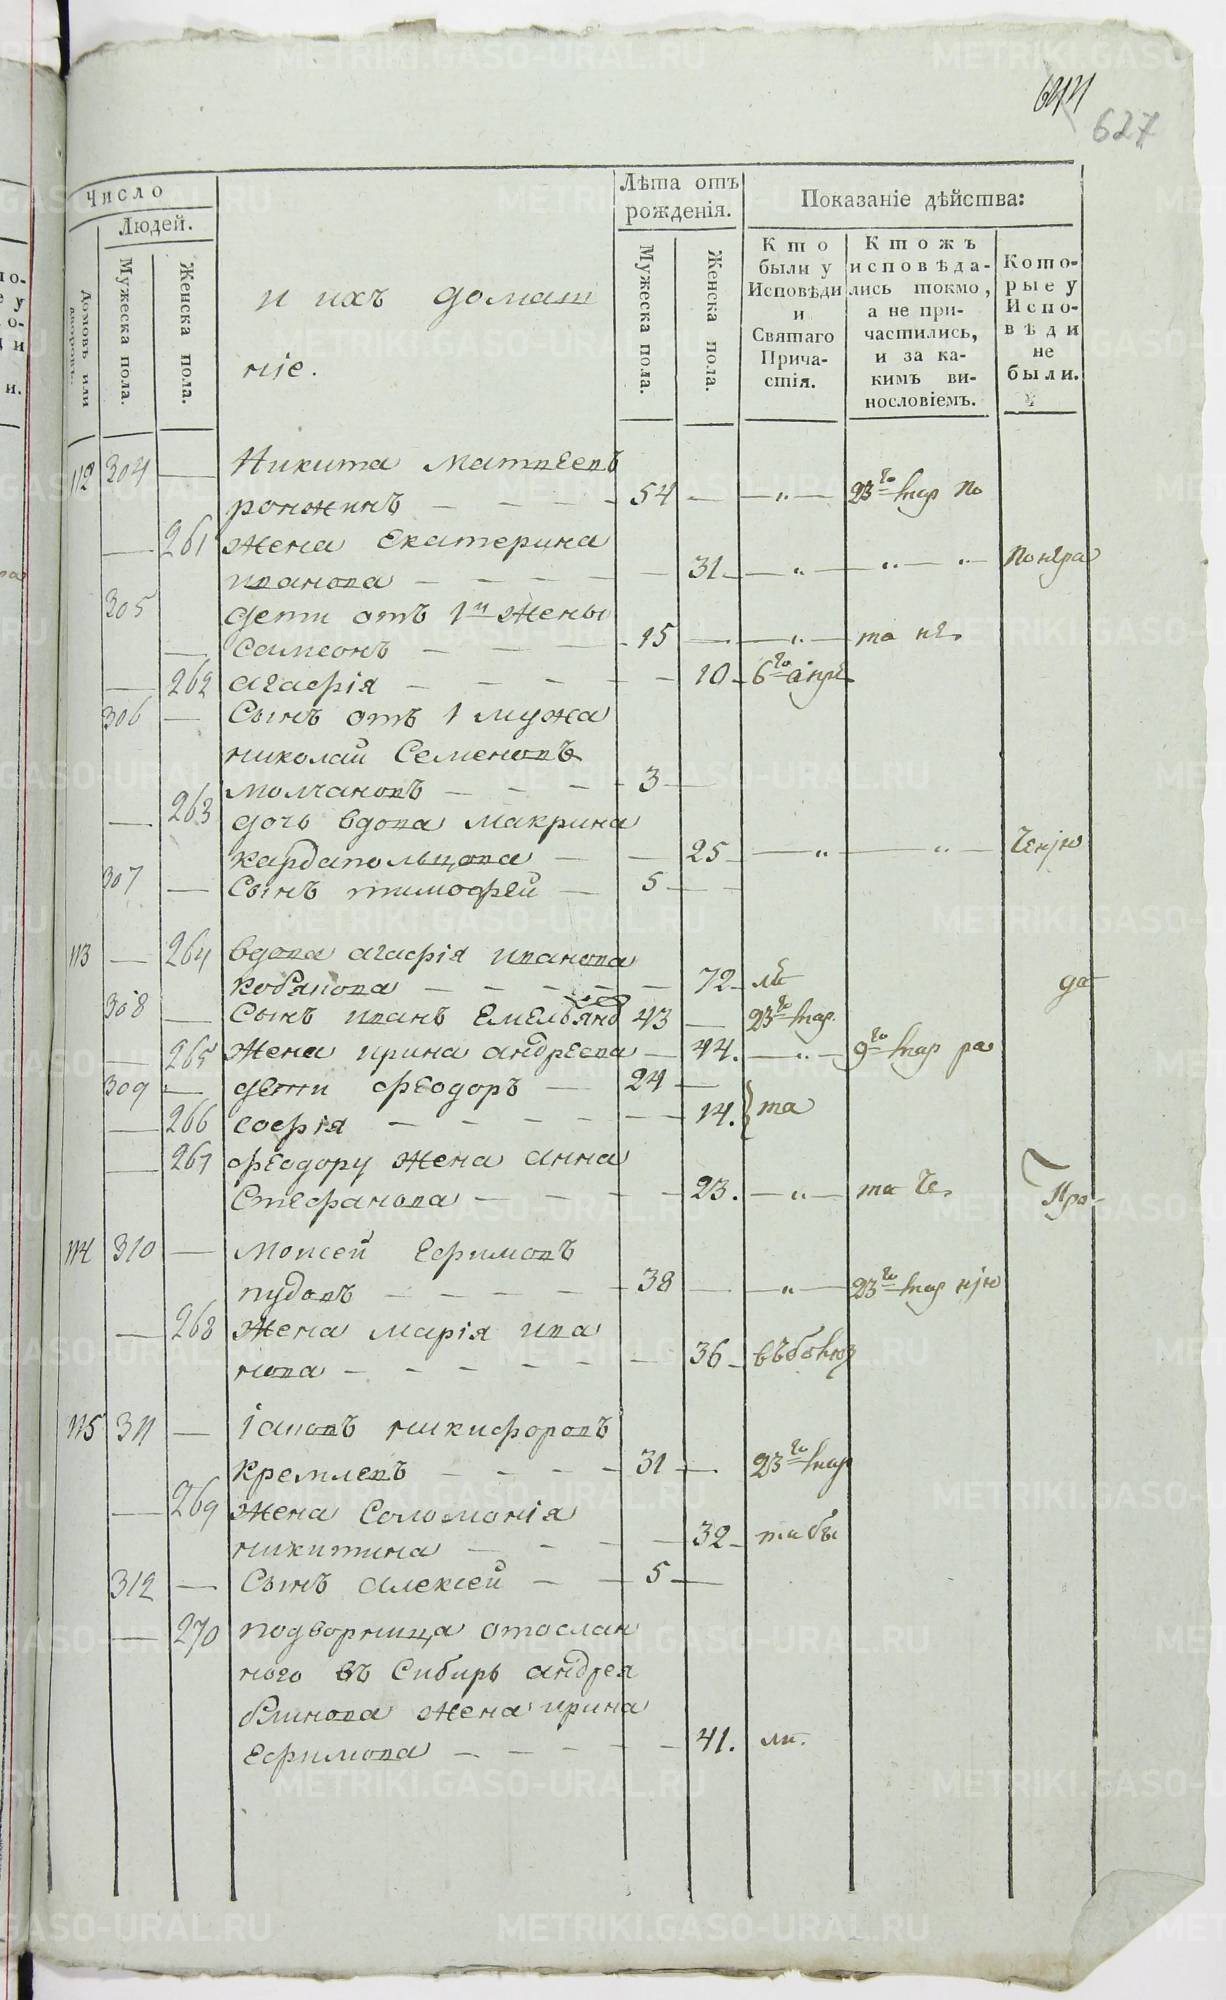 627
Число
Людей.
Домовъ или дворовъ.
Мужеска пола.
Женска пола.
и ихъ домаш
нiе.
Лѣта отъ
рожденiя.
Мужеска пола.
Женска пола.
Показанiе дѣйства:
Кто
были у
Исповѣди
и
Святаго
Прича-
стiя.
Ктожъ
исповѣда-
лись токмо,
а не при-
частились,
и за ка-
кимъ ви-
нословiемъ.
Кото-
рые у
Испо-
вѣди
не
были.
112 304 — Никита Матвеевъ
ронжинъ — — — — 54 — — „ — 23го мар по
— 261 жена Екатерина
иванова — — — — — 31 — — „ — „ — „ — понра
305 дети отъ 1й жены
— Самсонъ — — — 15 — — „ — та не
— 262 агафiя — — — — — 10 — 6го апре
306 — Сынъ отъ 1 мужа
николай Семеновъ
молчановъ — — — — 3 —
— 263 дочь вдова макрина
кардапольцова — — 25 — — „ — „ —
307 — Сынъ тимофей — 5 — —
113 — 264 вдова агафiя иванова
кобякова — — — — — 72 — да
308 — Сынъ иванъ Емельянъ 43 — 23го мар.
— 265 жена ирина андреева — 44. — „ — 9го мар ра
309 — дети феодоръ — 24 —
— 266 софiя — — — — — 14. та
— 267 феодору жена анна
Стефанова — — — — 23. — „ — та Че
114 310 — моисей Ефимовъ
пудовъ — — — — — 38 — — „ — 23го мар
— 268 жена марiя ива
нова — — — — — — 36 —
115 311 — iаковъ никифоровъ
кремлевъ — — — — 31 — 23го мар
— 269 жена Соломонiя
никитина — — — — 32 — та бы
312 — Сынъ алексей — — 5 —
— 270 подворница отослан
ного въ Сибирь андрея
блинова жена ирина
Ефимова — — — — — 41.